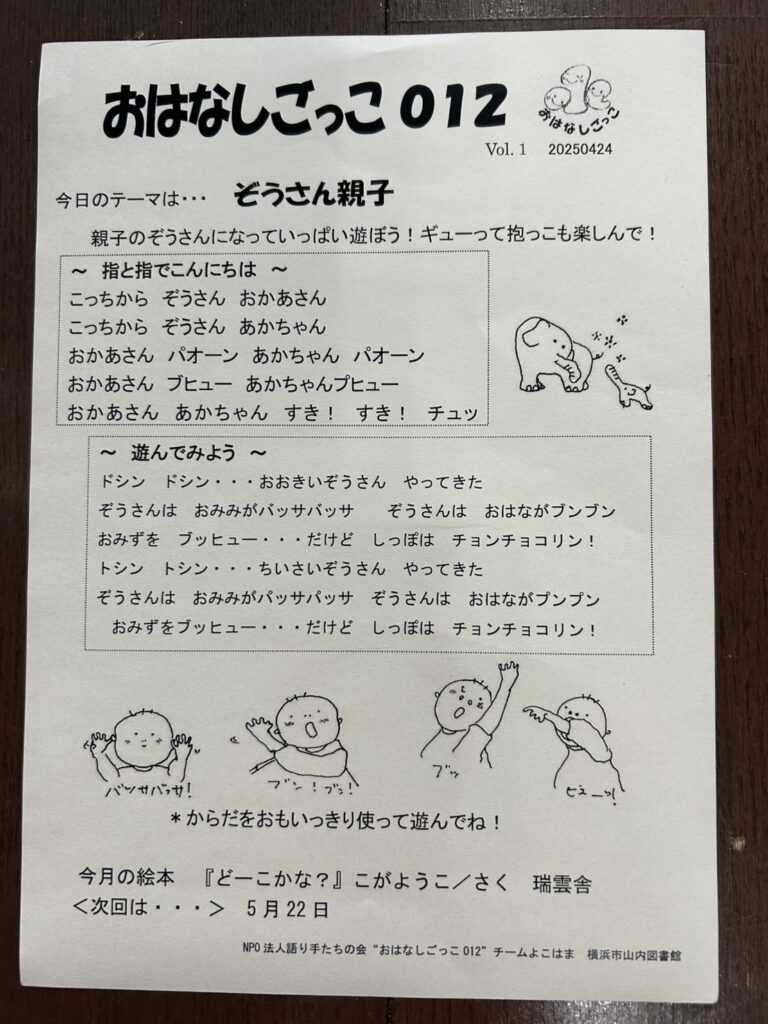 おはなしごっこ012
おはなしごっこ
Vol. 1 20250424
今日のテーマは・・・ ぞうさん親子
親子のぞうさんになっていっぱい遊ぼう！ギューって抱っこも楽しんで！
～ 指と指でこんにちは ～
こっちから ぞうさん おかあさん
こっちから ぞうさん あかちゃん
おかあさん パオーン あかちゃん パオーン
おかあさん ブヒュー あかちゃんプヒュー
おかあさん あかちゃん すき！ すき！ チュッ
～ 遊んでみよう ～
ドシン ドシン・・・おおきいぞうさん やってきた
ぞうさんは おみみがバッサバッサ ぞうさんは おはながブンブン
おみずを ブッヒュー・・・だけど しっぽは チョンチョコリン！
トシン トシン・・・ちいさいぞうさん やってきた
ぞうさんは おみみがパッサパッサ ぞうさんは おはながプンプン
おみずをプッヒュー・・・だけど しっぽは チョンチョコリン！
バッサバッサ！
ブン！ブン！
ブッ
ヒューッ！
＊からだをおもいっきり使って遊んでね！
今月の絵本 『どーこかな？』こがようこ／さく 瑞雲舎
＜次回は・・・＞ 5月22日
NPO法人語り手たちの会“おはなしごっこ012”チームよこはま 横浜市山内図書館